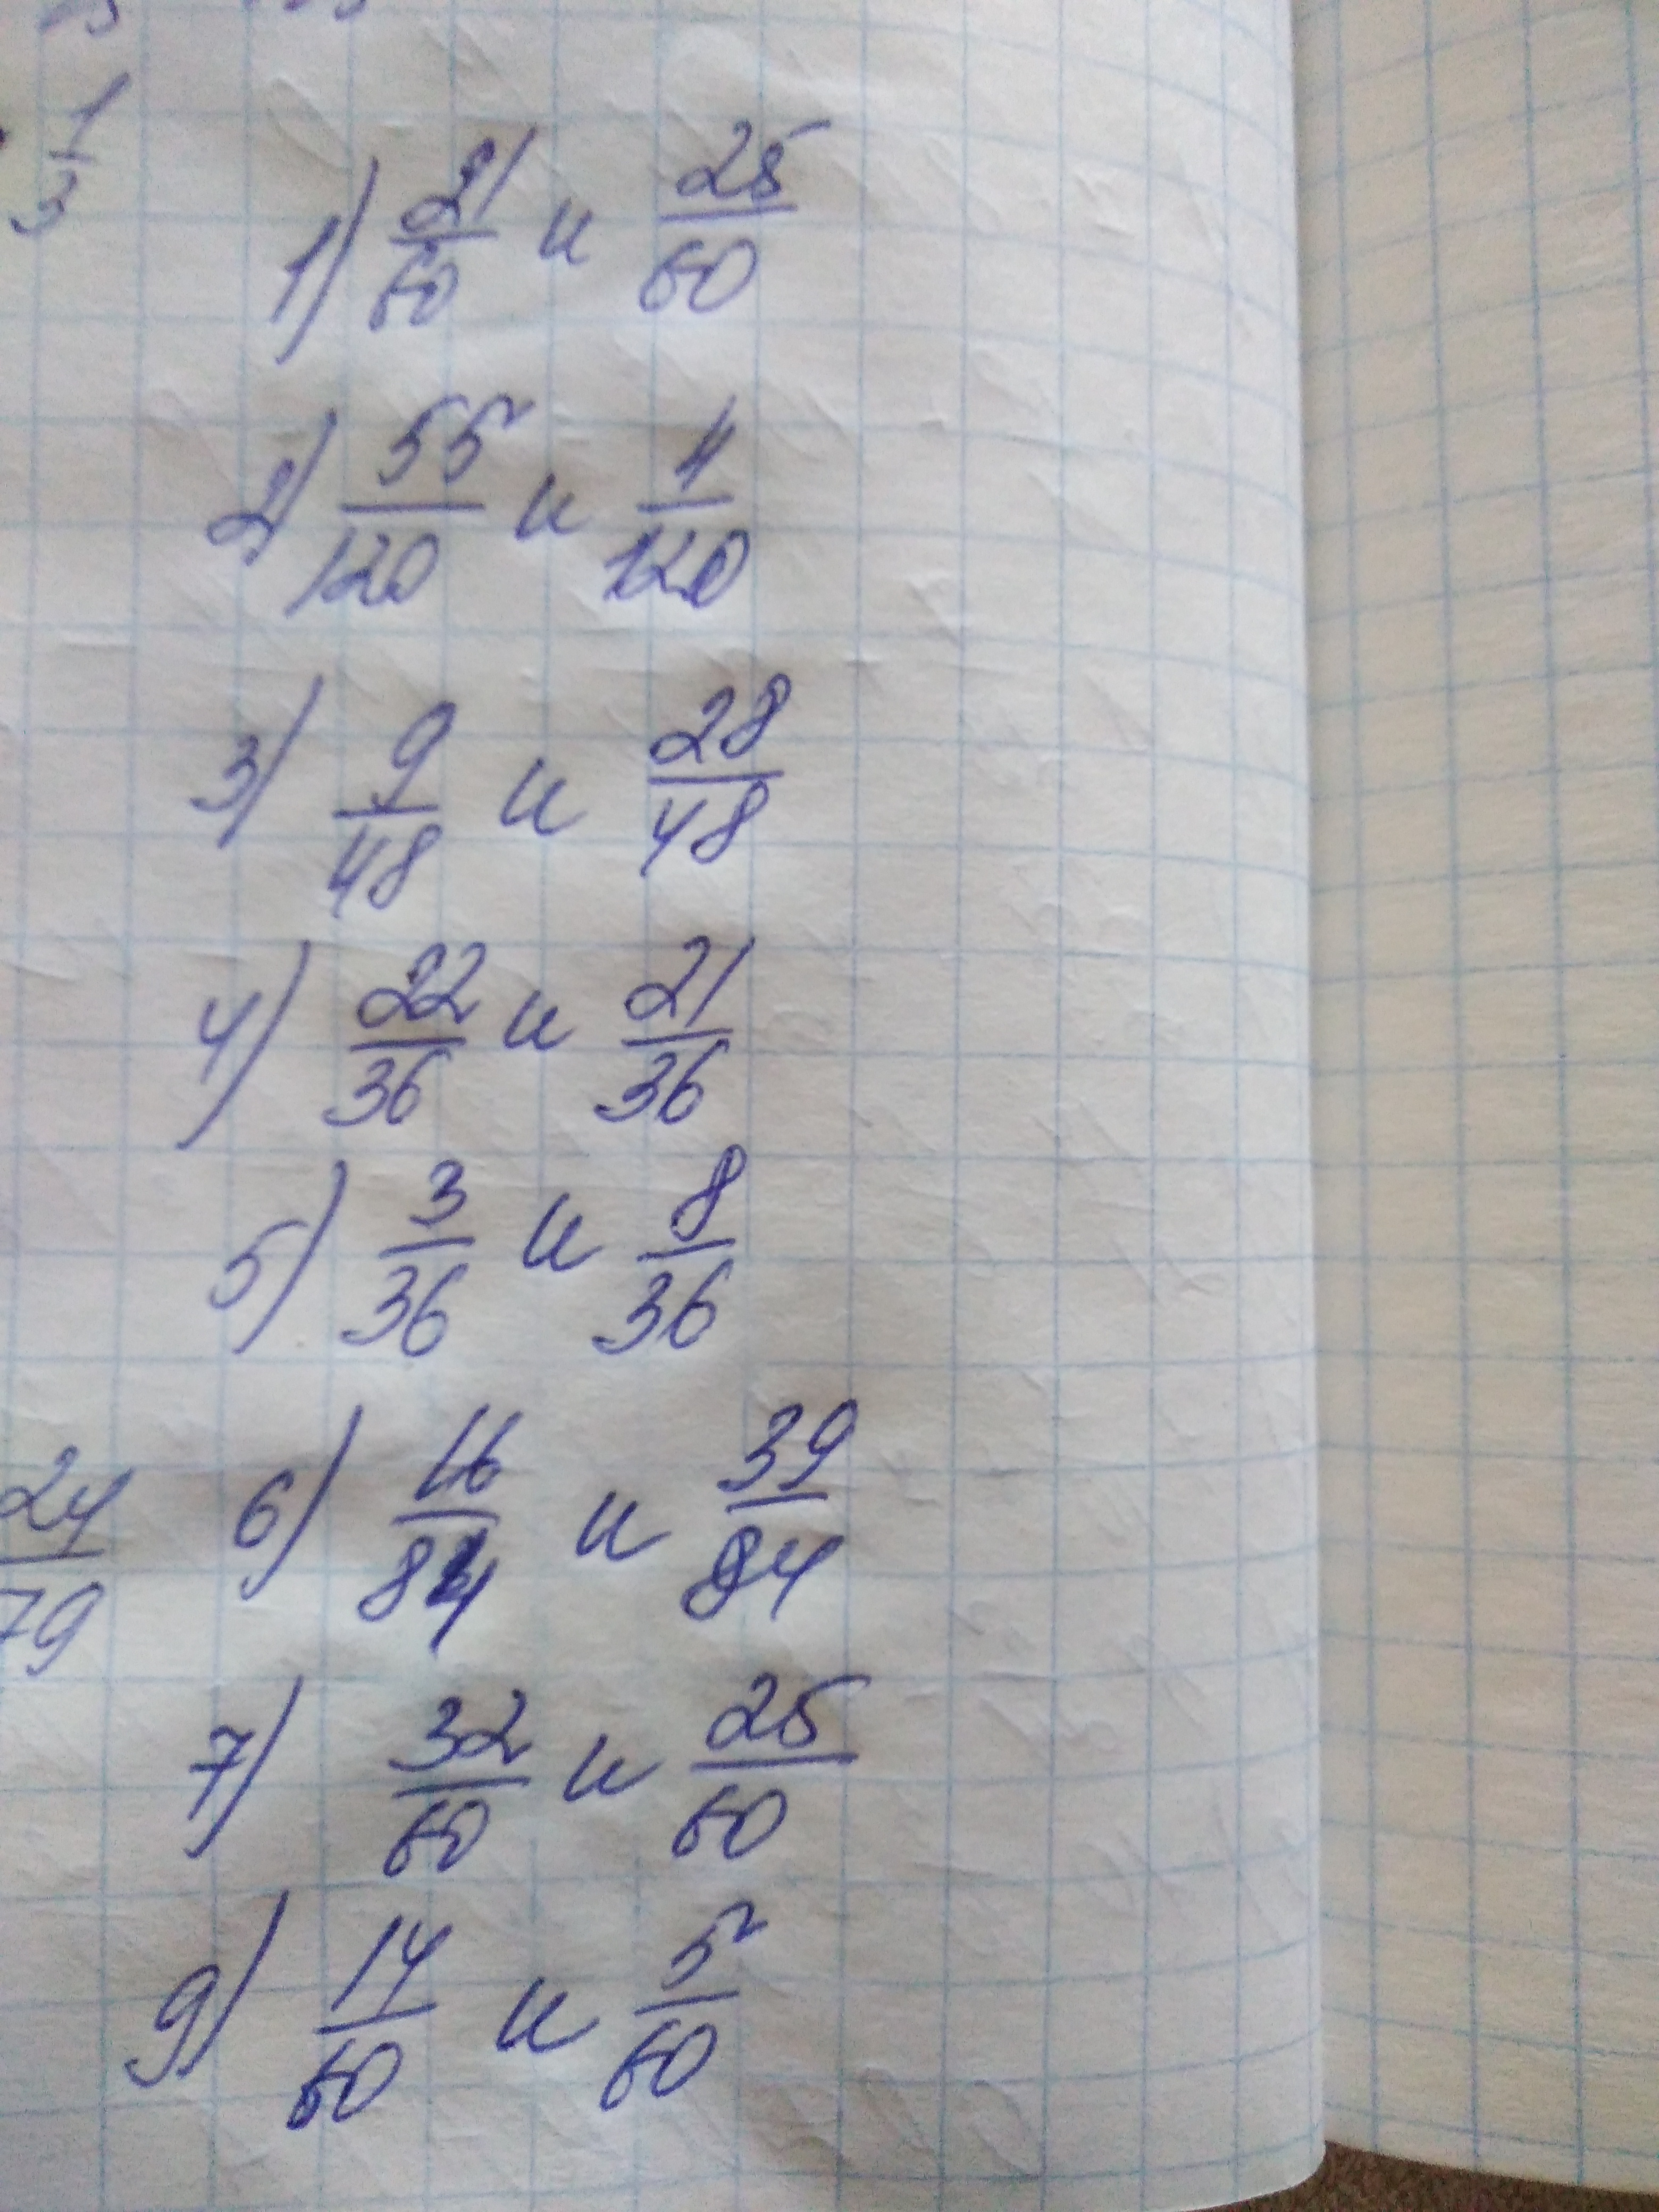 1/3
1) 21/60 и 25/60
2) 55/120 и 4/120
3) 9/48 и 28/48
4) 22/36 и 21/36
5) 3/36 и 8/36
24/79 6) 16/84 и 39/84
7) 32/60 и 25/60
9) 14/60 и 5/60